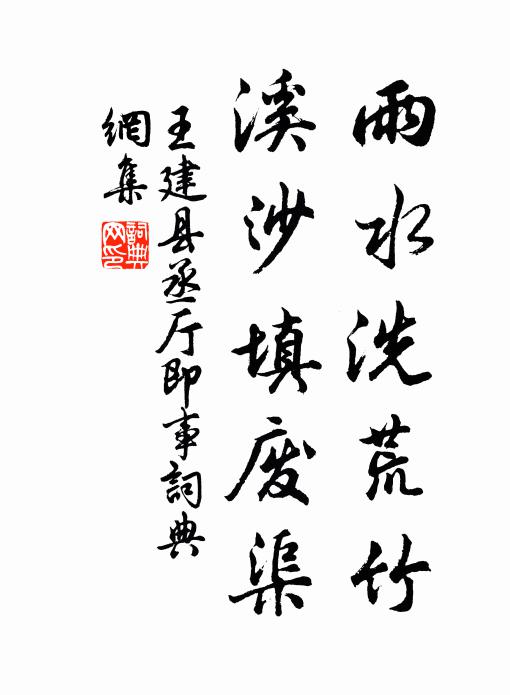 雨水洗荒竹
溪沙填废渠
王建县丞厅即事词典
網集
詞典
网印